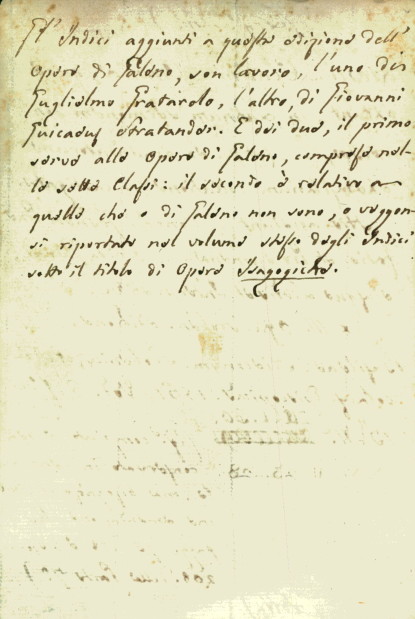 Gl' Indici aggiunti a questa edizione dell'
Opere di Galeno, son lavoro, l'uno di
Guglielmo Gratarolo, l'altro, di Giovanni
Oratander. E dei due, il primo
serve alle Opere di Galeno, comprese nel-
le sette Classi: il secondo è relativo a
quelle che o di Galeno non sono, o veggon-
si riportate nel volume stesso degli Indici
sotto il titolo di Opere Isagogiche.